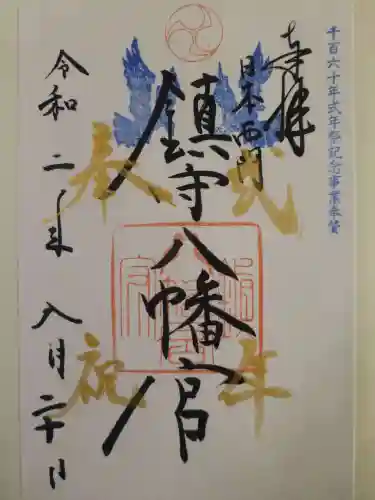 千百六十年式年祭記念事業奉賛
奉拝
日本西門
鎮守八幡宮
令和二年 八月二十日
式年
奉祝